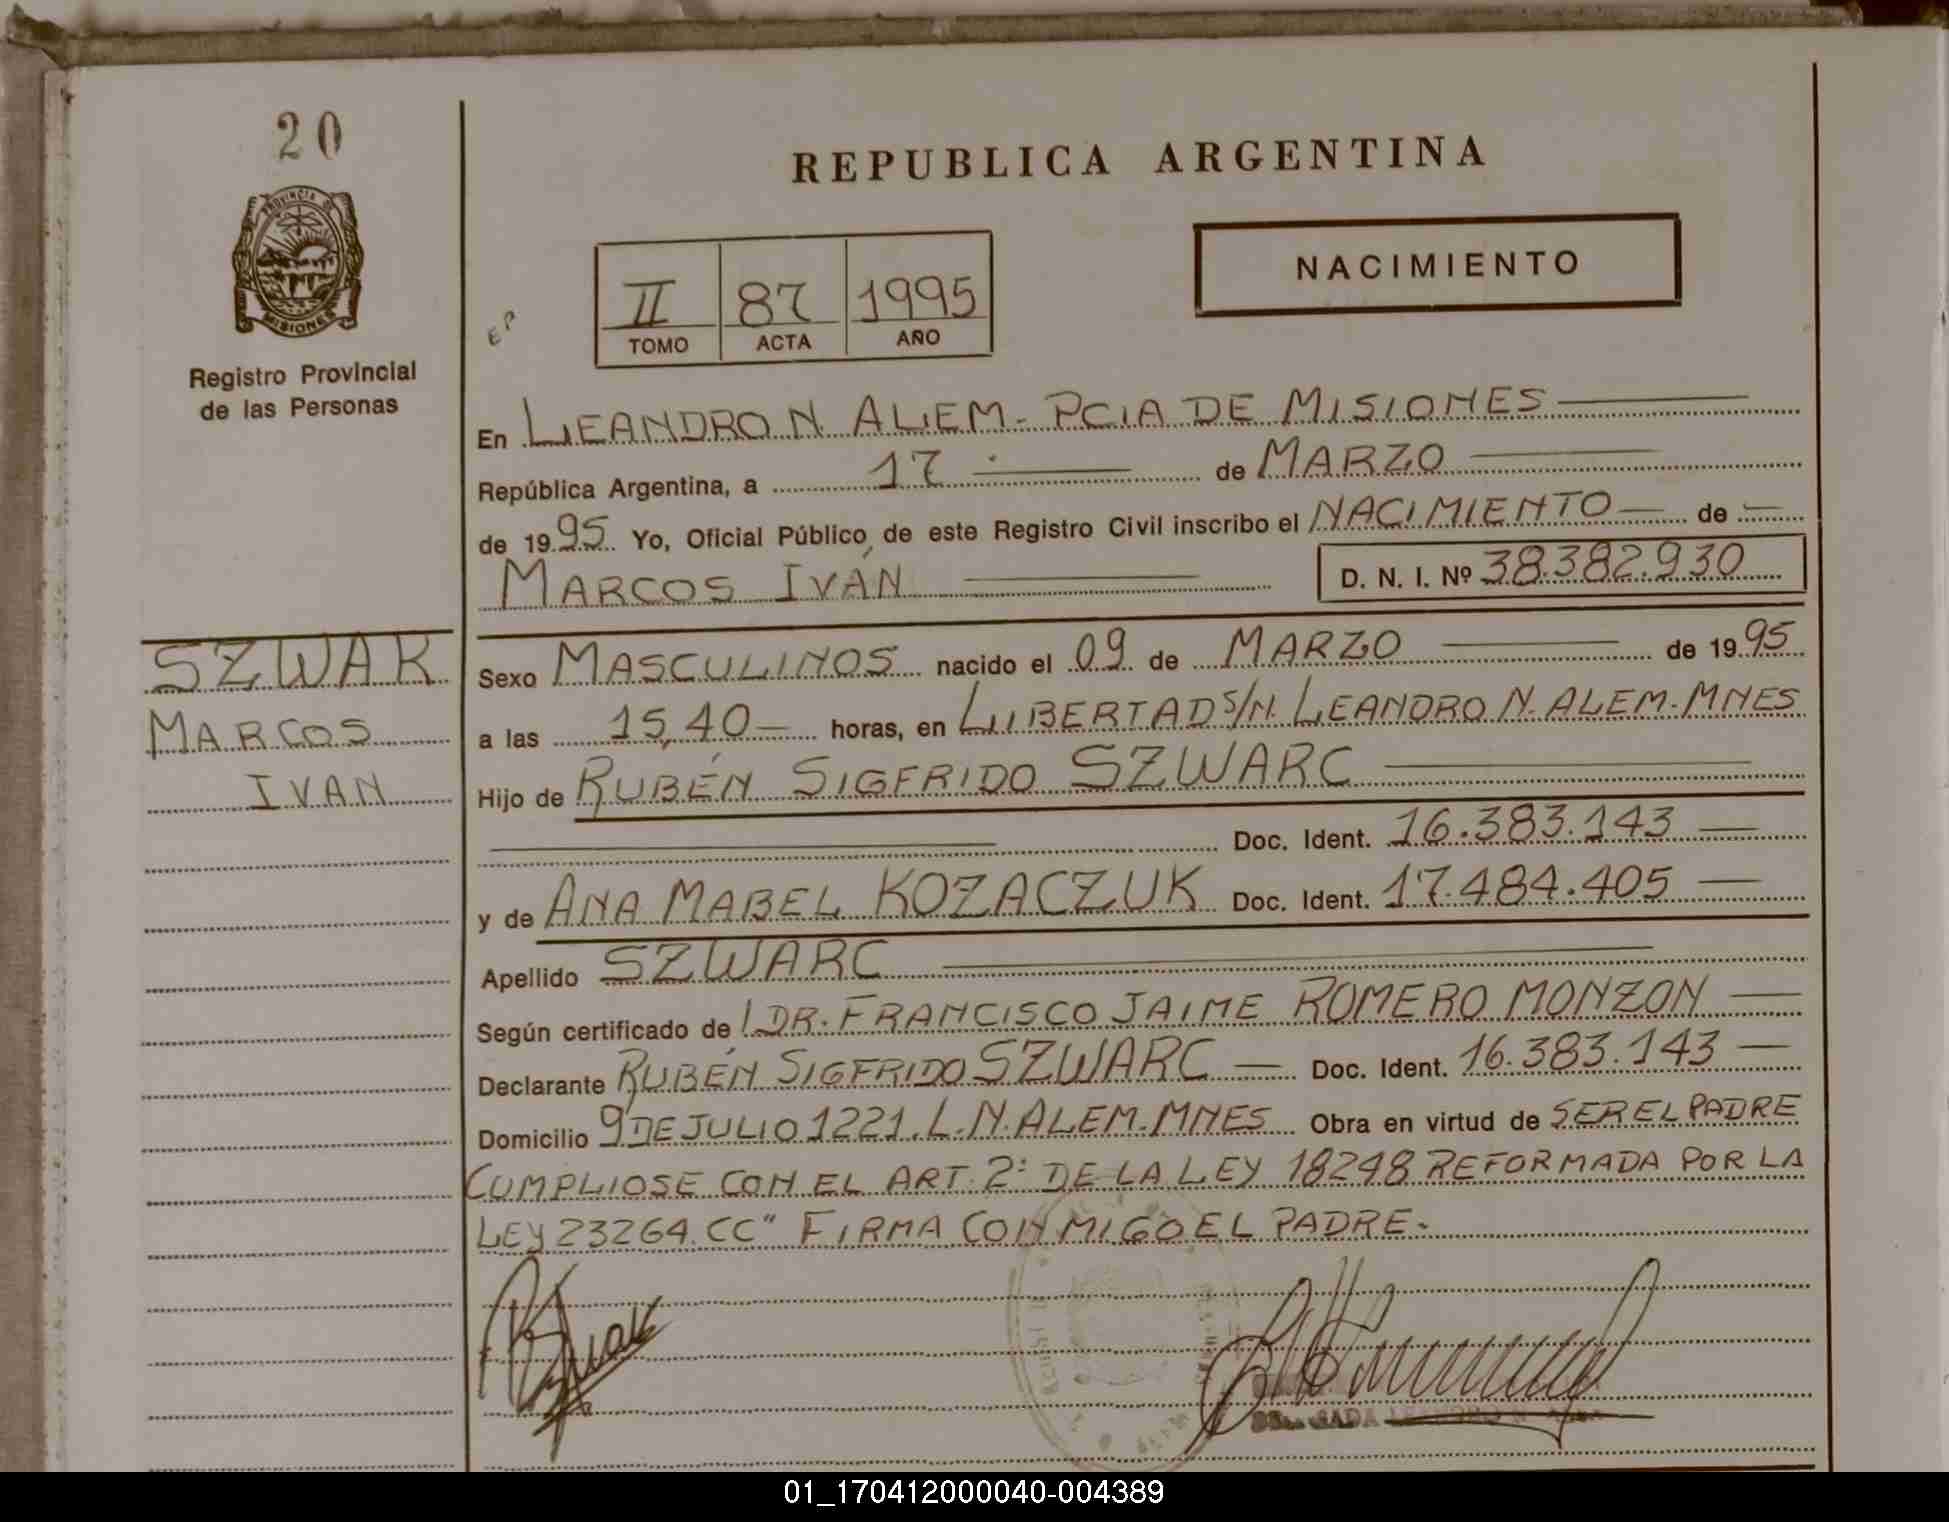 20
PROVINCIA DE
MISIONES
Registro Provincial
de las Personas
SZWAK
MARCOS
IVAN
REPUBLICA ARGENTINA
NACIMIENTO
EP
II 87 1995
TOMO ACTA AÑO
En LEANDRO N. ALEM - PCIA DE MISIONES
República Argentina, a 17 de MARZO
de 1995 Yo, Oficial Público de este Registro Civil inscribo el NACIMIENTO — de —
MARCOS IVÁN D. N. I. Nº 38.382.930
Sexo MASCULINOS nacido el 09 de MARZO de 1995
a las 15,40 — horas, en LIBERTAD S/N. LEANDRO N. ALEM. MNES
Hijo de RUBÉN SIGFRIDO SZWARC
Doc. Ident. 16.383.143 —
y de ANA MABEL KOZACZUK Doc. Ident. 17.484.405 —
Apellido SZWARC
Según certificado del DR. FRANCISCO JAIME ROMERO MONZON —
Declarante RUBÉN SIGFRIDO SZWARC — Doc. Ident. 16.383.143 —
Domicilio 9 DE JULIO 1221. L. N. ALEM. MNES Obra en virtud de SER EL PADRE
CUMPLIOSE CON EL ART. 2: DE LA LEY 18248 REFORMADA POR LA
LEY 23264. CC" FIRMA CONMIGO EL PADRE.
01_170412000040-004389